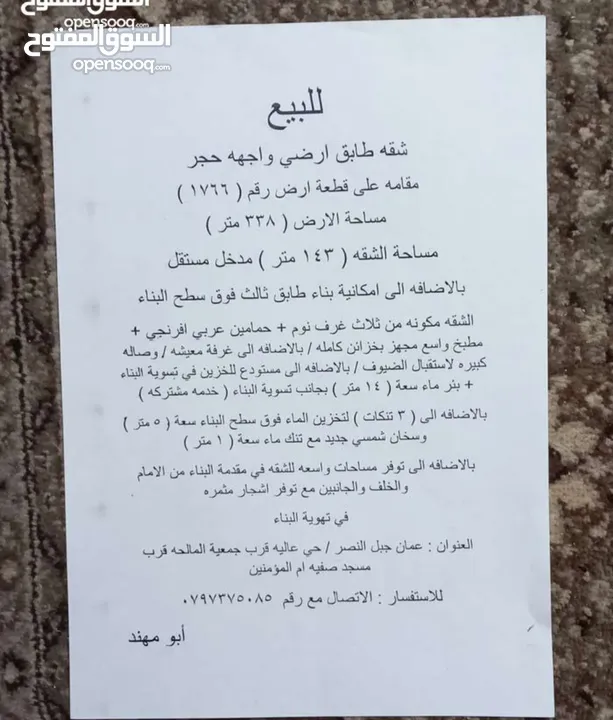 السوق المفتوح
opensooq.com
السوق المفتوح
opensooq.com
للبيع
شقه طابق ارضي واجهه حجر
مقامه على قطعة ارض رقم ( ١٧٦٦ )
مساحة الارض ( ٣٣٨ متر )
مساحة الشقه ( ١٤٣ متر ) مدخل مستقل
بالاضافه الى امكانية بناء طابق ثالث فوق سطح البناء
الشقه مكونه من ثلاث غرف نوم + حمامين عربي افرنجي +
مطبخ واسع مجهز بخزائن كامله / بالاضافه الى غرفة معيشه / وصاله
كبيره لاستقبال الضيوف / بالاضافه الى مستودع للخزين في تسوية البناء
+ بئر ماء سعة ( ١٤ متر ) بجانب تسوية البناء ( خدمه مشتركه )
بالاضافه الى ( ٣ تنكات ) لتخزين الماء فوق سطح البناء سعة ( ٥ متر )
وسخان شمسي جديد مع تنك ماء سعة ( ١ متر )
بالاضافه الى توفر مساحات واسعه للشقه في مقدمة البناء من الامام
والخلف والجانبين مع توفر اشجار مثمره
في تهوية البناء
العنوان : عمان جبل النصر / حي عاليه قرب جمعية المالحه قرب
مسجد صفيه ام المؤمنين
للاستفسار : الاتصال مع رقم ٠٧٩٧٣٧٥٠٨٥
أبو مهند